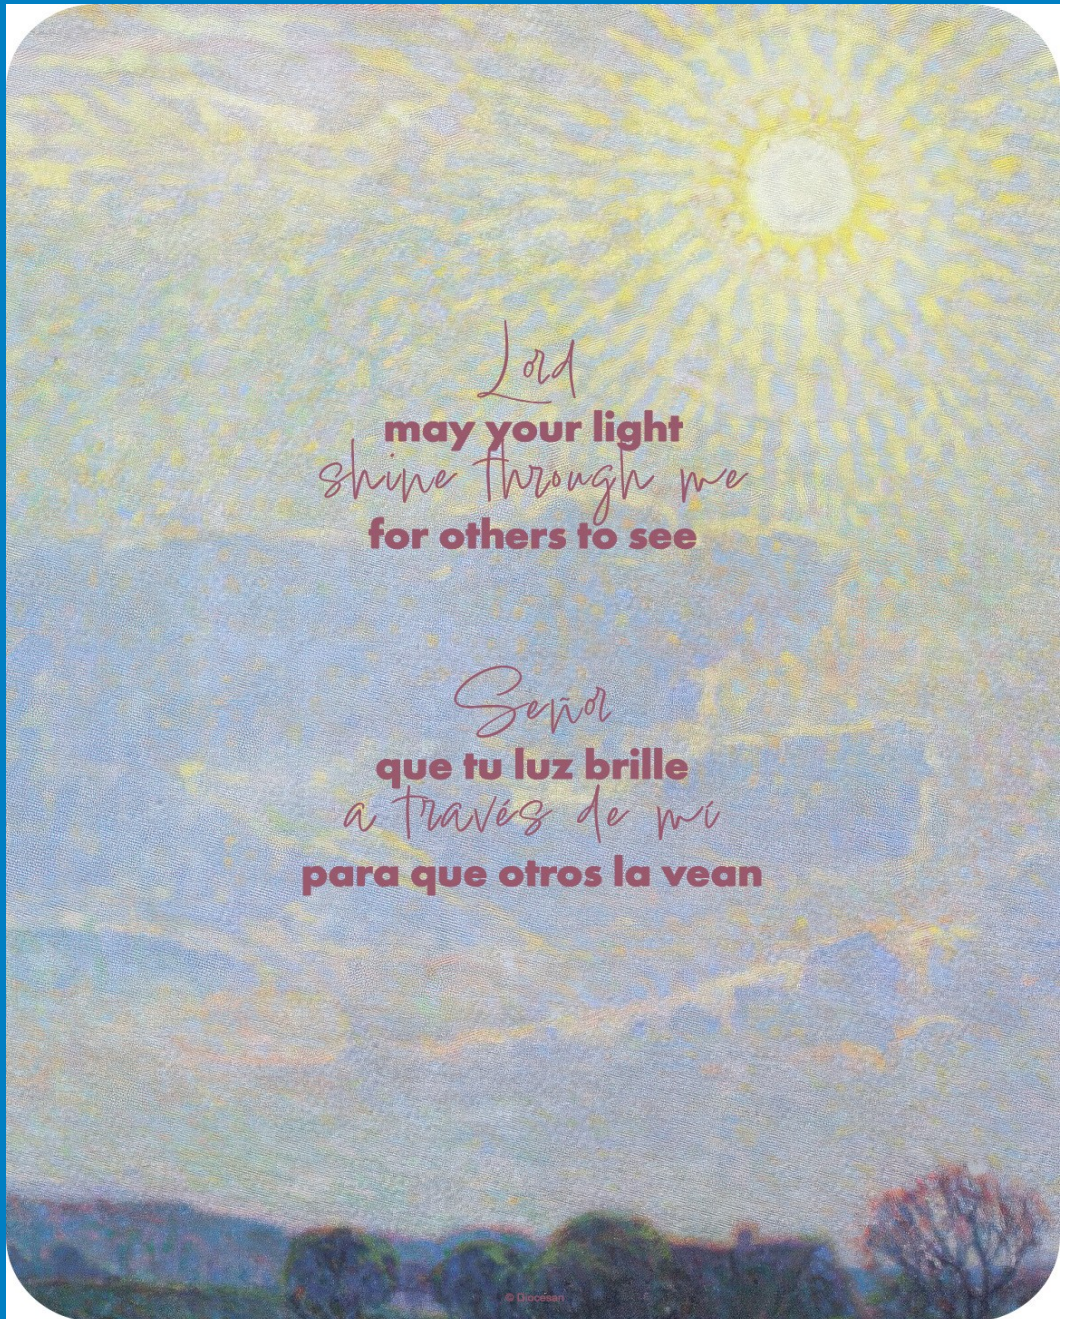 Lord
may your light
shine through me
for others to see
Señor
que tu luz brille
a través de mí
para que otros la vean
© Diocesan